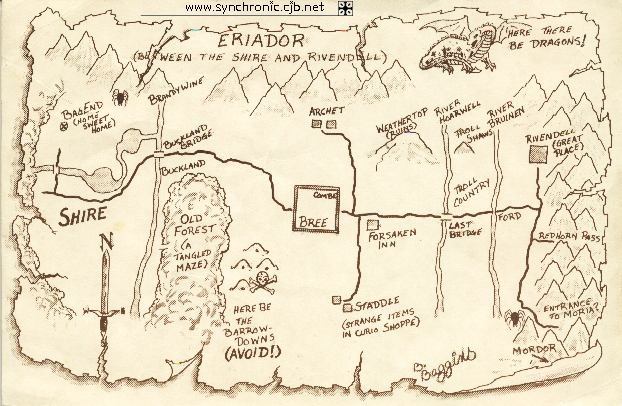 www.synchronic.cjb.net
ERIADOR
(BETWEEN THE SHIRE AND RIVENDELL)
HERE THERE
BE DRAGONS!
BAGEND
(HOME
SWEET
HOME)
BRANDYWINE
ARCHET
WEATHERTOP
(RUINS)
RIVER
HOARWELL
TROLL
SHAWS
RIVER
BRUINEN
RIVENDELL
(GREAT
PLACE)
BUCKLAND
BRIDGE
BUCKLAND
TROLL
COUNTRY
SHIRE
OLD
FOREST
(A
TANGLED
MAZE)
COMBE
BREE
FORSAKEN
INN
LAST
BRIDGE
FORD
REDHORN PASS
N
HERE BE
THE
BARROW-
DOWNS
(AVOID!)
STADDLE
(STRANGE ITEMS
IN CURIO SHOPPE)
ENTRANCE
TO MORIA?
MORDOR
B. Baggins